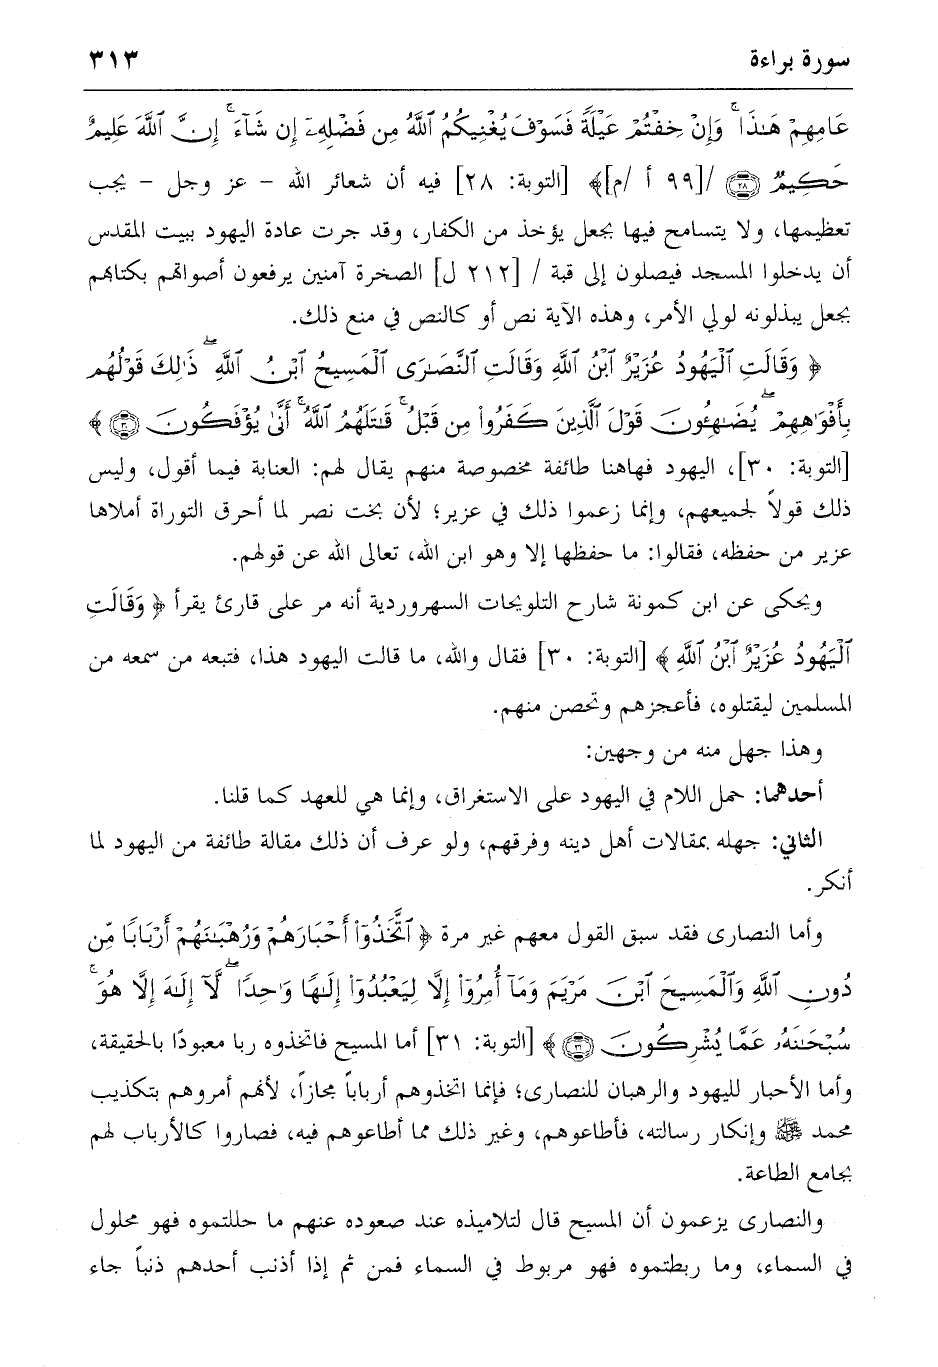 سورة براءة ٣١٣
عَامِهِمْ هَٰذَا ۚ وَإِنْ خِفْتُمْ عَيْلَةً فَسَوْفَ يُغْنِيكُمُ ٱللَّهُ مِن فَضْلِهِۦٓ إِن شَآءَ ۚ إِنَّ ٱللَّهَ عَلِيمٌ
حَكِيمٌ ﴿٢٨﴾ /[٩٩ أ /م]﴾ [التوبة: ٢٨] فيه أن شعائر الله - عز وجل - يجب
تعظيمها، ولا يتسامح فيها بجعل يؤخذ من الكفار، وقد جرت عادة اليهود ببيت المقدس
أن يدخلوا المسجد فيصلون إلى قبة / [٢١٢ ل] الصخرة آمنين يرفعون أصواتهم بكتابهم
بجعل يبذلونه لولي الأمر، وهذه الآية نص أو كالنص في منع ذلك.
﴿ وَقَالَتِ ٱلْيَهُودُ عُزَيْرٌ ٱبْنُ ٱللَّهِ وَقَالَتِ ٱلنَّصَٰرَى ٱلْمَسِيحُ ٱبْنُ ٱللَّهِ ۖ ذَٰلِكَ قَوْلُهُم
بِأَفْوَٰهِهِمْ ۖ يُضَٰهِـُٔونَ قَوْلَ ٱلَّذِينَ كَفَرُوا۟ مِن قَبْلُ ۚ قَٰتَلَهُمُ ٱللَّهُ ۚ أَنَّىٰ يُؤْفَكُونَ ﴿٣٠﴾ ﴾
[التوبة: ٣٠]، اليهود فهاهنا طائفة مخصوصة منهم يقال لهم: العنابة فيما أقول، وليس
ذلك قولاً لجميعهم، وإنما زعموا ذلك في عزير؛ لأن بخت نصر لما أحرق التوراة أملاها
عزير من حفظه، فقالوا: ما حفظها إلا وهو ابن الله، تعالى الله عن قولهم.
ويحكى عن ابن كمونة شارح التلويحات السهروردية أنه مر على قارئ يقرأ ﴿ وَقَالَتِ
ٱلْيَهُودُ عُزَيْرٌ ٱبْنُ ٱللَّهِ ﴾ [التوبة: ٣٠] فقال والله، ما قالت اليهود هذا، فتبعه من سمعه من
المسلمين ليقتلوه، فأعجزهم وتحصن منهم.
وهذا جهل منه من وجهين:
أحدهما: حمل اللام في اليهود على الاستغراق، وإنما هي للعهد كما قلنا.
الثاني: جهله بمقالات أهل دينه وفرقهم، ولو عرف أن ذلك مقالة طائفة من اليهود لما
أنكر.
وأما النصارى فقد سبق القول معهم غير مرة ﴿ ٱتَّخَذُوٓا۟ أَحْبَارَهُمْ وَرُهْبَٰنَهُمْ أَرْبَابًا مِّن
دُونِ ٱللَّهِ وَٱلْمَسِيحَ ٱبْنَ مَرْيَمَ وَمَآ أُمِرُوٓا۟ إِلَّا لِيَعْبُدُوٓا۟ إِلَٰهًا وَٰحِدًا ۖ لَّآ إِلَٰهَ إِلَّا هُوَ ۚ
سُبْحَٰنَهُۥ عَمَّا يُشْرِكُونَ ﴿٣١﴾ ﴾ [التوبة: ٣١] أما المسيح فاتخذوه ربا معبودًا بالحقيقة،
وأما الأحبار لليهود والرهبان للنصارى؛ فإنما اتخذوهم أرباباً مجازاً، لأنهم أمروهم بتكذيب
محمد ﷺ وإنكار رسالته، فأطاعوهم، وغير ذلك مما أطاعوهم فيه، فصاروا كالأرباب لهم
بجامع الطاعة.
والنصارى يزعمون أن المسيح قال لتلاميذه عند صعوده عنهم ما حللتموه فهو محلول
في السماء، وما ربطتموه فهو مربوط في السماء فمن ثم إذا أذنب أحدهم ذنباً جاء